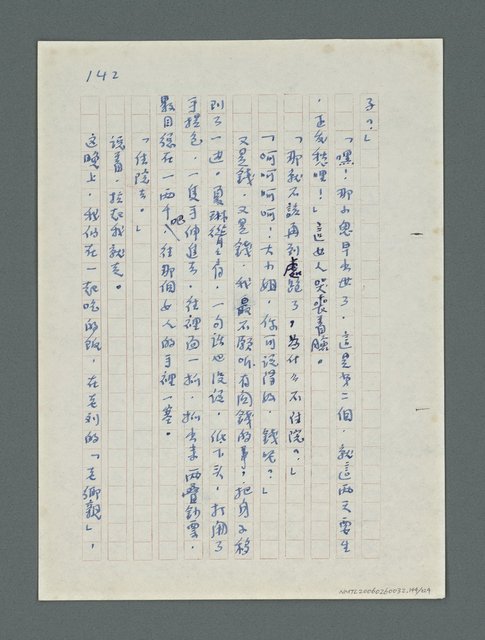 142
子？」
「嘿！那小鬼早出世了，這是第二個，就這兩天要生
，正發愁哩！」這女人哭喪着臉。
「那就不該再到處跑了，為什么不住院？」
「呵呵呵呵！大小姐，你可說得好，錢呢？」
又是錢，又是錢，我最不願听有関錢的事，把身子移
到了一边。夏琳從旁看，一句話也沒說，低下头，打開了
手提包，一隻手伸進去，往裡面一抓，抓出來兩疊鈔票，
數目總在一兩千吧，往那個女人的手裡一塞。
「住院去。」
說着，拉起我就走。
这晚上，我們在一起吃的飯，在老刘的「老鄉親」，
NMTL20060260032.149/04